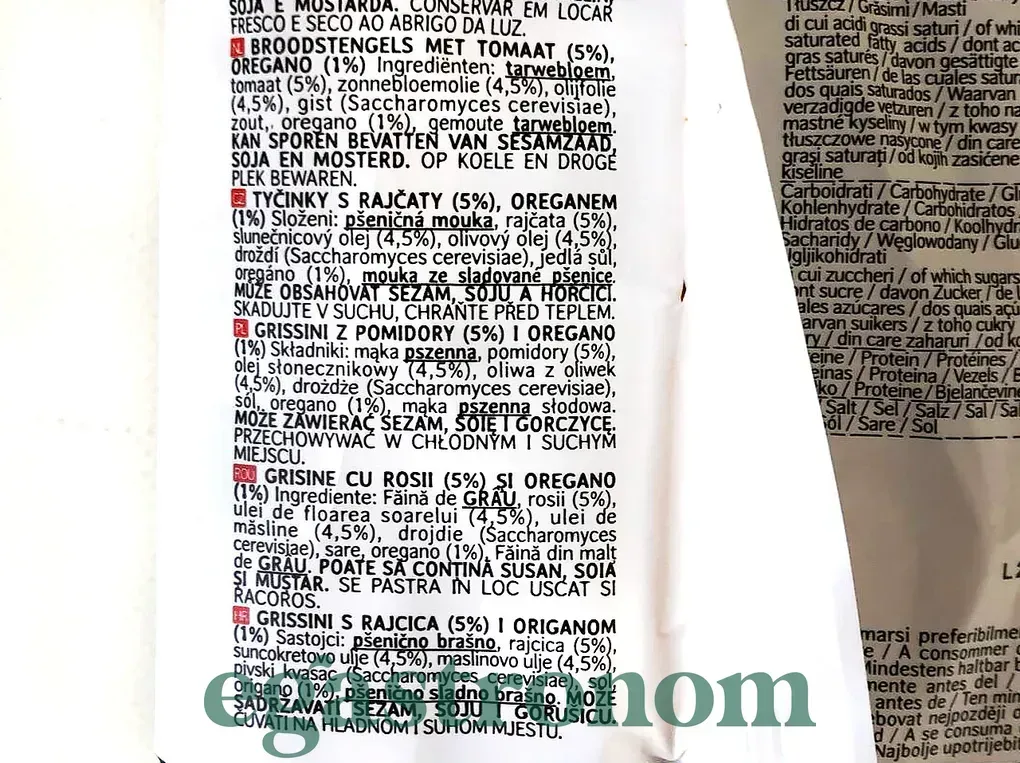 SOJA E MOSTARDA. CONSERVAR EM LOCAR
FRESCO E SECO AO ABRIGO DA LUZ.
NL BROODSTENGELS MET TOMAAT (5%),
OREGANO (1%) Ingrediënten: tarwebloem,
tomaat (5%), zonnebloemolie (4,5%), olijfolie
(4,5%), gist (Saccharomyces cerevisiae),
zout, oregano (1%), gemoute tarwebloem.
KAN SPOREN BEVATTEN VAN SESAMZAAD,
SOJA EN MOSTERD. OP KOELE EN DROGE
PLEK BEWAREN.
CZ TYČINKY S RAJČATY (5%), OREGANEM
(1%) Složeni: pšeničná mouka, rajčata (5%),
slunečnicový olej (4,5%), olivový olej (4,5%),
droždí (Saccharomyces cerevisiae), jedlá sůl,
oregáno (1%), mouka ze sladované pšenice.
MŮŽE OBSAHOVAT SEZAM, SÓJU A HOŘČICI.
SKADUJTE V SUCHU, CHRAŇTE PŘED TEPLEM.
PL GRISSINI Z POMIDORY (5%) I OREGANO
(1%) Składniki: mąka pszenna, pomidory (5%),
olej słonecznikowy (4,5%), oliwa z oliwek
(4,5%), drożdże (Saccharomyces cerevisiae),
sól, oregano (1%), mąka pszenna słodowa.
MOŻE ZAWIERAĆ SEZAM, SOIĘ I GORCZYCĘ.
PRZECHOWYWAĆ W CHŁODNYM I SUCHYM
MIEJSCU.
ROU GRISINE CU ROSII (5%) ȘI OREGANO
(1%) Ingrediente: Făină de GRÂU, rosii (5%),
ulei de floarea soarelui (4,5%), ulei de
măsline (4,5%), drojdie (Saccharomyces
cerevisiae), sare, oregano (1%), Făină din malt
de GRÂU. POATE SĂ CONȚINĂ SUSAN, SOIA
ȘI MUȘTAR. SE PASTRA ÎN LOC USCAT SI
RACOROS.
HR GRISSINI S RAJCICA (5%) I ORIGANOM
(1%) Sastojci: pšenično brašno, rajcica (5%),
suncokretovo ulje (4,5%), maslinovo ulje (4,5%),
pivski kvasac (Saccharomyces cerevisiae), sol,
origano (1%), pšenično sladno brašno. MOŽE
SADRŽAVATI SEZAM, SOJU I GORUŠICU.
ČUVATI NA HLADNOM I SUHOM MJESTU.
egastronom
Tłuszcz / Grăsimi / Masti
di cui acidi grassi saturi / of whi
saturated fatty acids / dont ac
gras saturés / davon gesättigte
Fettsäuren / de las cuales satur
dos quais saturados / Waarvan
verzadigde vetzuren / z toho na
mastné kyseliny / w tym kwasy
tłuszczowe nasycone / din care
grași saturați / od kojih zasićene
kiseline
Carboidrati / Carbohydrate / Gl
Kohlenhydrate / Carbohidratos
Hidratos de carbono / Koolhydr
Sacharidy / Węglowodany / Glu
Ugljikohidrati
cui zuccheri / of which sugars
ont sucre / davon Zucker / de l
ales azúcares / dos quais açú
arvan suikers / z toho cukry
ry / din care zaharuri / od ko
eine / Protein / Protéines /
einas / Proteina / Vezels / B
ko / Proteine / Bjelančevine
Salt / Sel / Salz / Sal / Sal
Sól / Sare / Sol
L2
marsi preferibilme
e / A consommer
Mindestens haltbar b
mente antes del /
antes de / Ten min
bovat nejpozději d
d / A se consuma
Najbolje upotrijebit